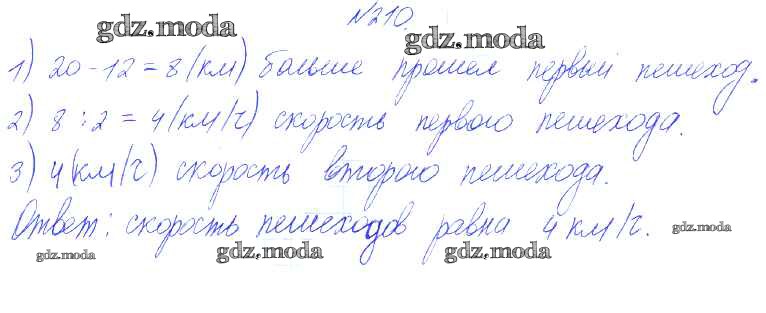 №210.
gdz.moda gdz.moda
1) 20-12=8(км) больше прошел первый пешеход.
2) 8:2=4(км/ч) скорость первого пешехода.
3) 4(км/ч) скорость второго пешехода.
Ответ: скорость пешеходов равна 4км/ч. gdz.moda
gdz.moda gdz.moda gdz.moda